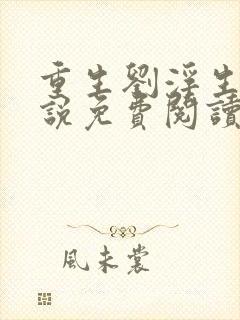 重生劉淫生
說免費閱讀
風未裳